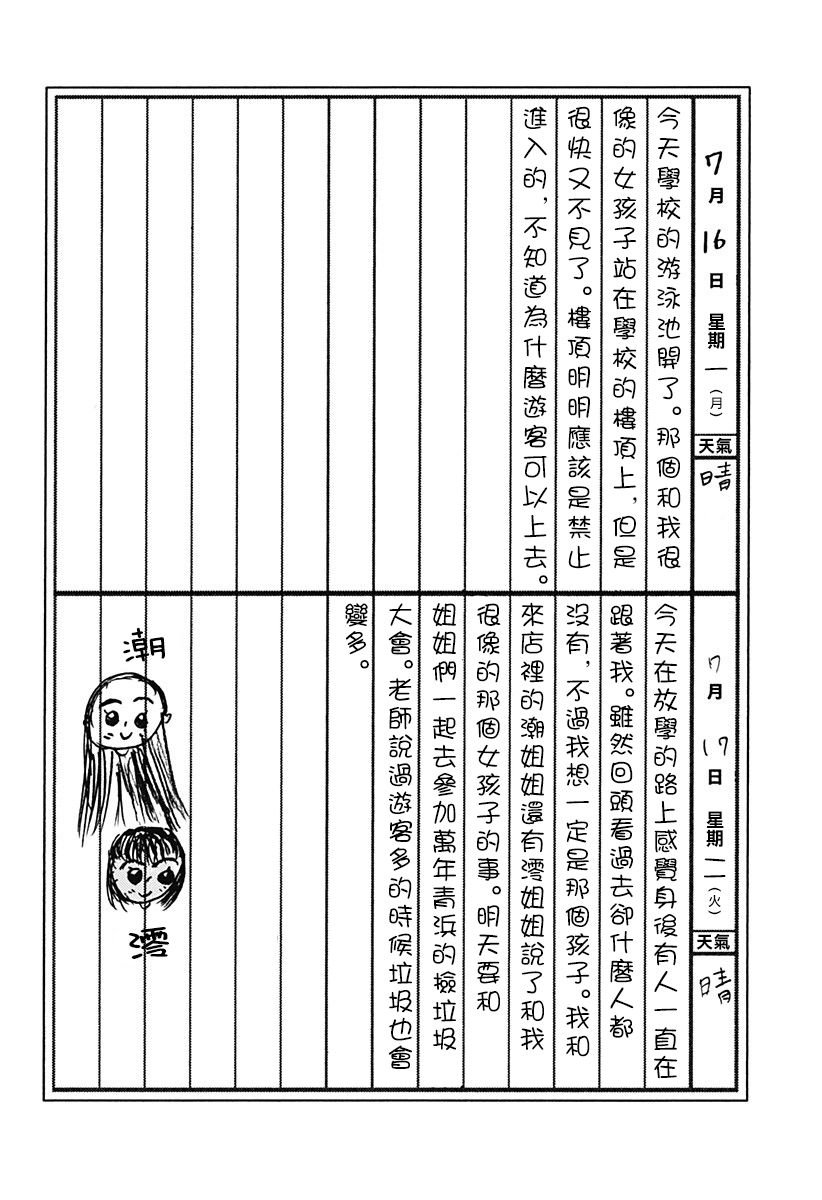 7月16日 星期一(月)
天氣
晴
今天學校的游泳池開了。那個和我很
像的女孩子站在學校的樓頂上，但是
很快又不見了。樓頂明明應該是禁止
進入的，不知道為什麼遊客可以上去。
7月17日 星期二(火)
天氣
晴
今天在放學的路上感覺身後有人一直在
跟著我。雖然回頭看過去卻什麼人都
沒有，不過我想一定是那個孩子。我和
來店裡的潮姐姐還有澪姐姐說了和我
很像的那個女孩子的事。明天要和
姐姐們一起去參加萬年青浜的撿垃圾
大會。老師說過遊客多的時候垃圾也會
變多。
潮
澪